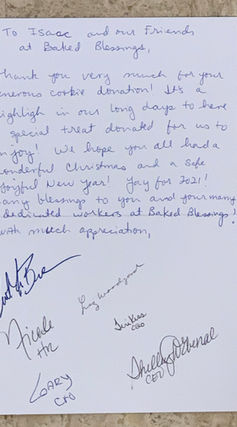 To Isaac and our Friends
at Baked Blessings,
hank you very much for your
enerous cookie donation! It's a
highligh in our long days to have
special treat donated for us to
njoy! We hope you all had a
onderful Christmas and a Safe
Joyful New Year! Yay for 2021!
any blessings to you and your many
dedicated workers at Baked Blessings!
with much appreciation,
Nicole
HR
GARY
CFO
COO
CEO